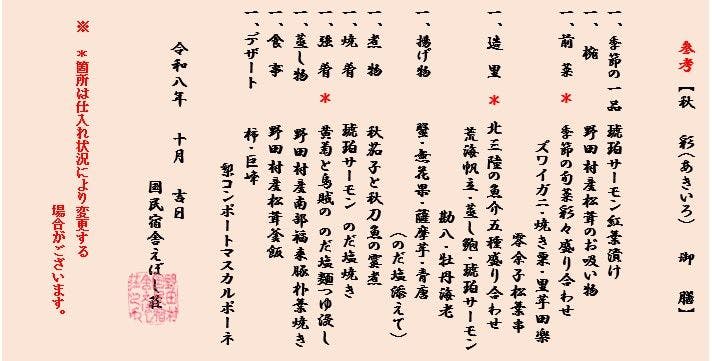 参考【秋 彩(あきいろ) 御 膳】
一、季節の一品 琥珀サーモン紅葉漬け
一、椀 野田村産松茸のお吸い物
一、前 菜 * 季節の旬菜彩々盛り合わせ
ズワイガニ・焼き栗・里芋田楽
零余子松葉串
一、造 里 * 北三陸の魚介五種盛り合わせ
荒海帆立・蒸し鮑・琥珀サーモン
勘八・牡丹海老
一、揚げ物 蟹・無花果・薩摩芋・青唐
(のだ塩添えて)
一、煮 物 秋茄子と秋刀魚の雲煮
一、焼 肴 琥珀サーモン のだ塩焼き
一、強 肴 * 黄菊と烏賊の のだ塩麺つゆ浸し
一、蒸し物 野田村産南部福来豚朴葉焼き
一、食 事 野田村産松茸釜飯
一、デザート 柿・巨峰
梨コンポートマスカルポーネ
令和八年 十月 吉日
国民宿舎えぼし荘
※ *箇所は仕入れ状況により変更する
場合がございます。